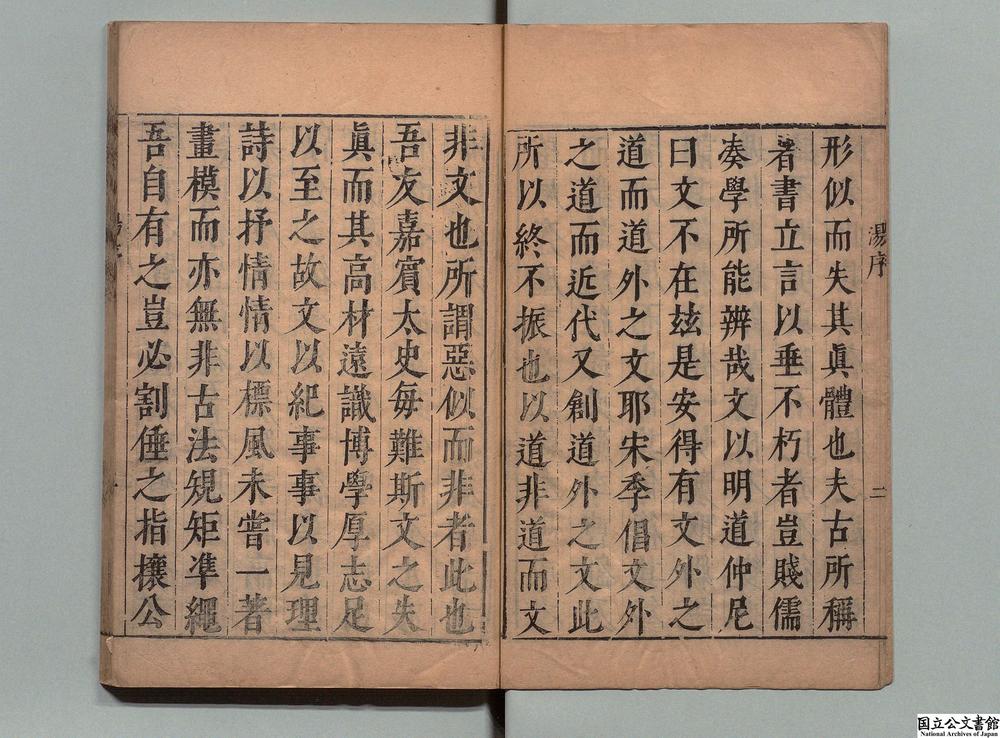 湯序
二
形似而失其眞體也夫古所稱
著書立言以垂不朽者豈賤儒
湊學所能辨哉文以明道仲尼
曰文不在玆是安得有文外之
道而道外之文耶宋季倡文外
之道而近代又創道外之文此
所以終不振也以道非道而文
非文也所謂惡似而非者此也
吾友嘉賓太史每難斯文之失
眞而其高材遠識博學厚志足
以至之故文以紀事事以見理
詩以抒情情以標風未嘗一著
畫模而亦無非古法規矩準繩
吾自有之豈必割倕之指攘公
国立公文書館
National Archives of Japan